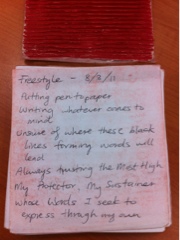 Freestyle - 8/2/11
Putting pen to paper
Writing whatever comes to
mind
Unsure of where these blank
lines forming words will
lead
Always trusting the Most High
My Protector, My Sustainer
whose Words I seek to
express through my own